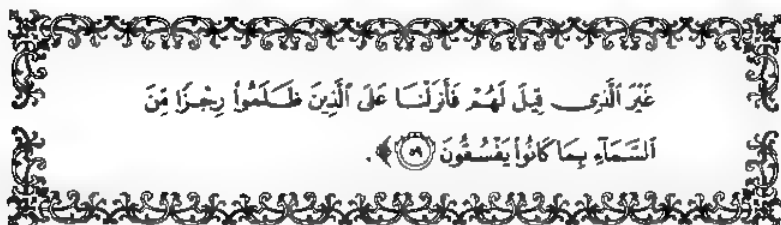 غَيْرَ الَّذِي قِيلَ لَهُمْ فَأَنزَلْنَا عَلَى الَّذِينَ ظَلَمُوا۟ رِجْزًا مِّنَ
السَّمَآءِ بِمَا كَانُوا۟ يَفْسُقُونَ ٥٩ ﴾ .